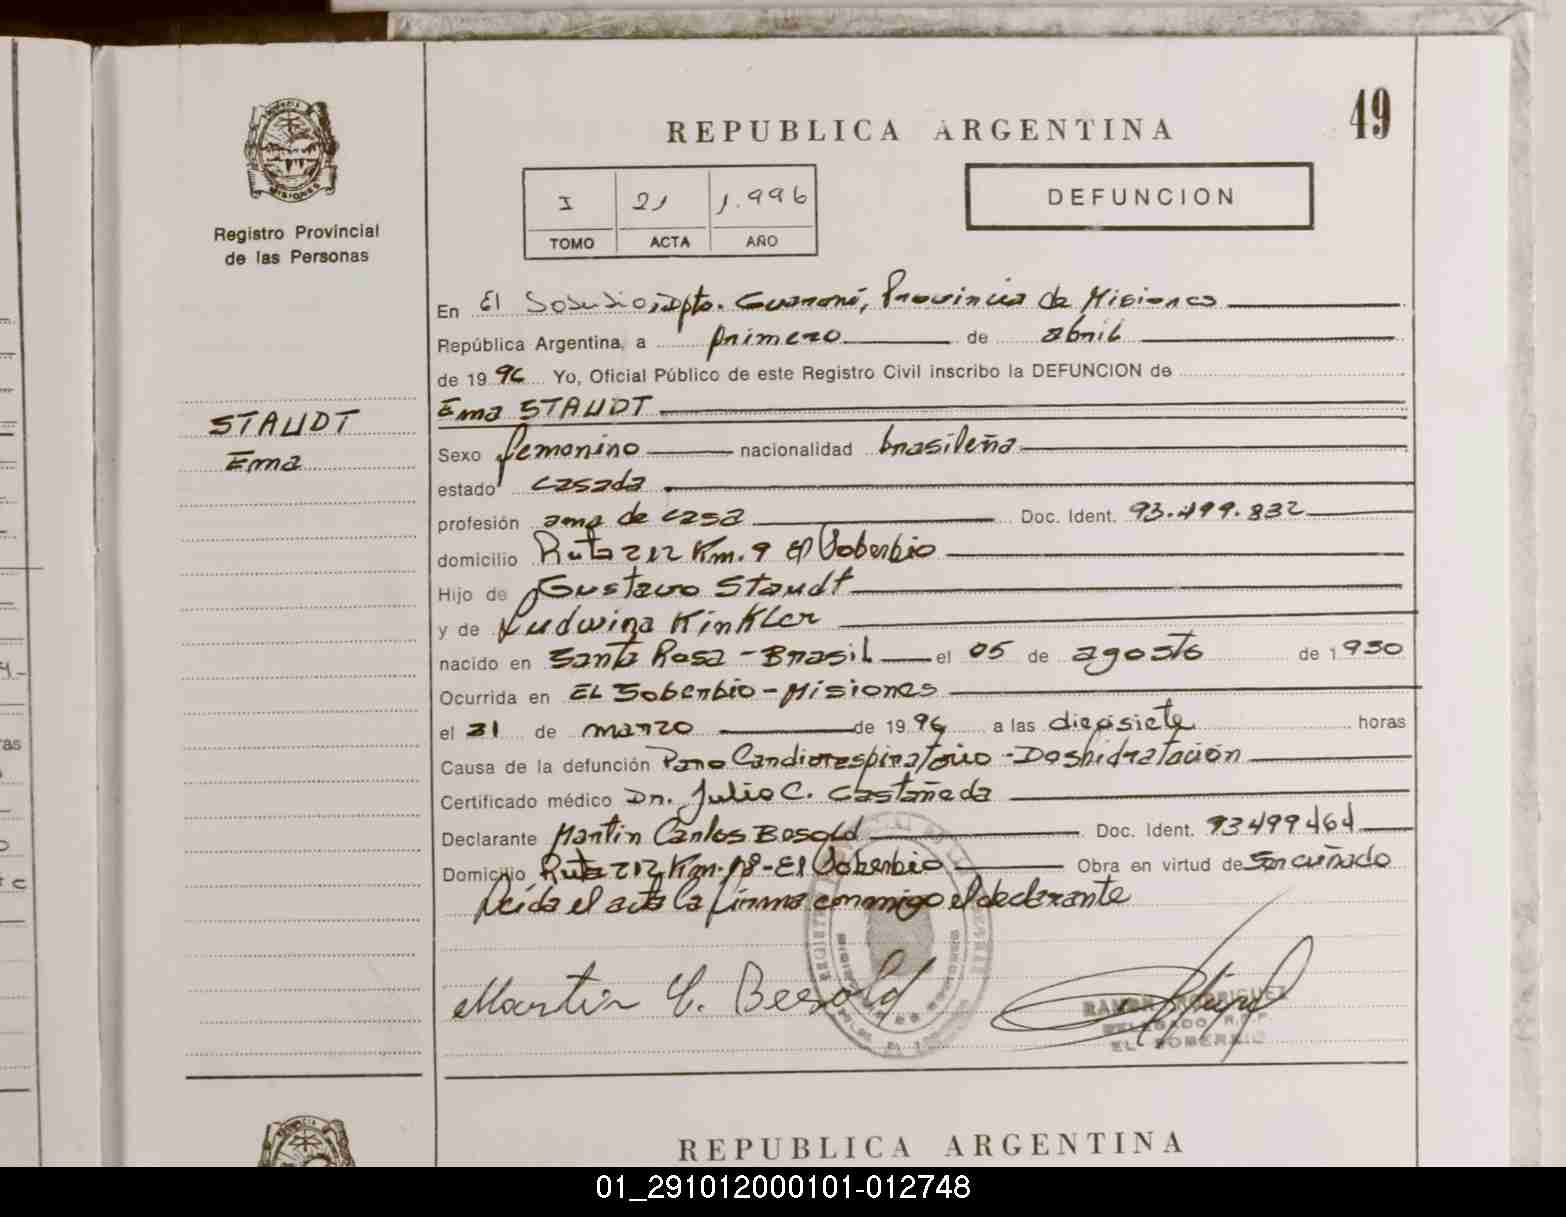 49
REPUBLICA ARGENTINA
I 21 1.996
TOMO ACTA AÑO
DEFUNCION
PROVINCIA
MISIONES
Registro Provincial
de las Personas
STAUDT
Ema
En El Soberbio, Dpto. Guaraní, Provincia de Misiones
República Argentina, a primero de abril
de 1996 Yo, Oficial Público de este Registro Civil inscribo la DEFUNCION de
Ema STAUDT
Sexo femenino nacionalidad brasileña
estado casada
profesión ama de casa Doc. Ident. 93.499.832
domicilio Ruta 212 Km. 9 El Soberbio
Hijo de Gustavo Staudt
y de Ludwina Kinkler
nacido en Santa Rosa - Brasil el 05 de agosto de 1930
Ocurrida en El Soberbio - Misiones
el 31 de marzo de 1996 a las diecisiete horas
Causa de la defunción Paro Cardiorespiratorio - Deshidratación
Certificado médico Dr. Julio C. Castañeda
Declarante Martin Carlos Besold Doc. Ident. 93499464
Domicilio Ruta 212 Km. 18 - El Soberbio Obra en virtud de Ser cuñado
Leída el acta la firma conmigo el declarante
Martin C. Besold
RAMON RODRIGUEZ
DELEGADO R.C.P.
EL SOBERBIO
REPUBLICA ARGENTINA
01_291012000101-012748